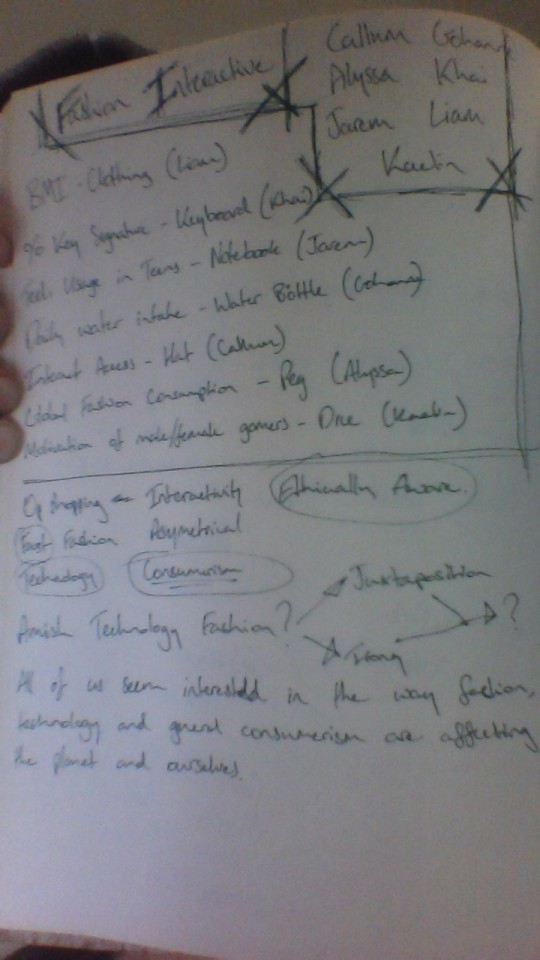 Fashion Interactive
Callum Gehann
Alyssa Khai
Jarem Liam
Kaelin
BMI - Clothing (Liam)
% Key Signature - Keyboard (Khai)
Tech Usage in Teens - Notebook (Jarem)
Daily water intake - Water Bottle
Internet Access - Hat (Callum)
Global Fashion Consumption - Peg (Alyssa)
Motivation of male/female gamers - Dice (Kaelin)
Op shopping Interactivity Ethically Aware.
Fast Fashion Asymetrical
Technology Consumerism
Amish Technology Fashion?
Juxtaposition
?
Irony
All of us seem interested in the way fashion,
technology and general consumerism are affecting
the planet and ourselves.